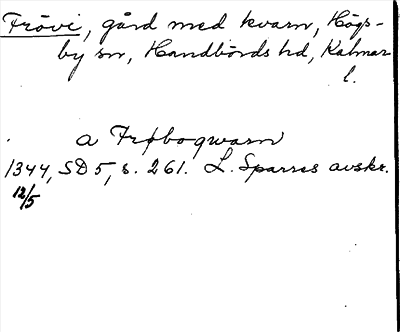 Frövi, gård med kvarn, Högs-
by sn, Handbörds hd, Kalmar
l.
a Frøboqwarn
1344, SD 5, s. 261. L. Sparres avskr.
12/5